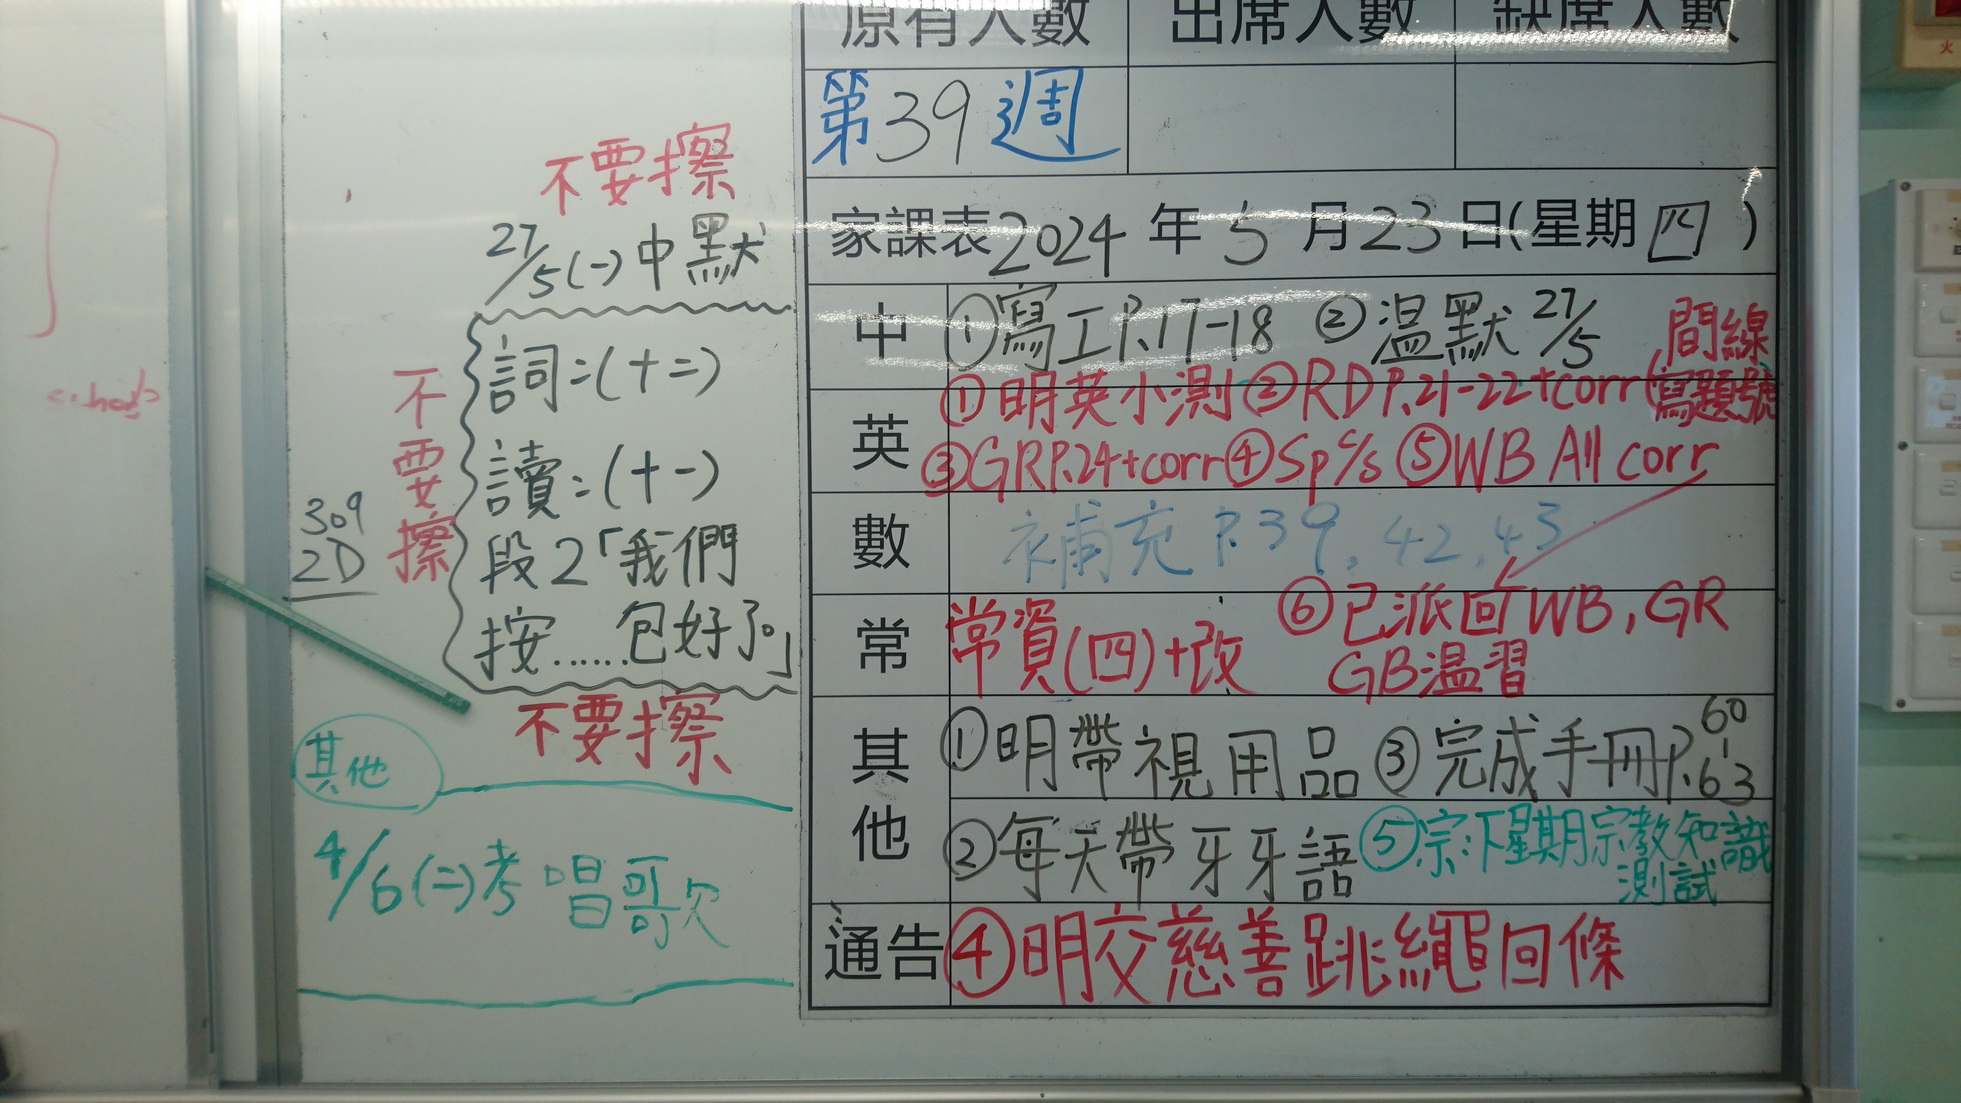 原有人數 出席人數 缺席人數
第39週
家課表2024年5月23日(星期四)
中 ①寫工P.17-18 ②温默27/5
英 ①明英小測②RDP.21-22+corr(間線寫題號
③GRP.24+corr④Sp c/s⑤WB All corr
數 補充P.39,42,43
常 常資(四)+改 ⑥已派回WB,GR
GB温習
其他 ①明帶視用品③完成手冊P.60-63
②每天帶牙牙語⑤宗:下星期宗教知識測試
通告 ④明交慈善跳繩回條
不要擦
27/5(一)中默
詞:(十二)
讀:(十一)
段2「我們
按……包好了。」
不要擦
309
2D
不要擦
其他
4/6(二)考唱歌
火